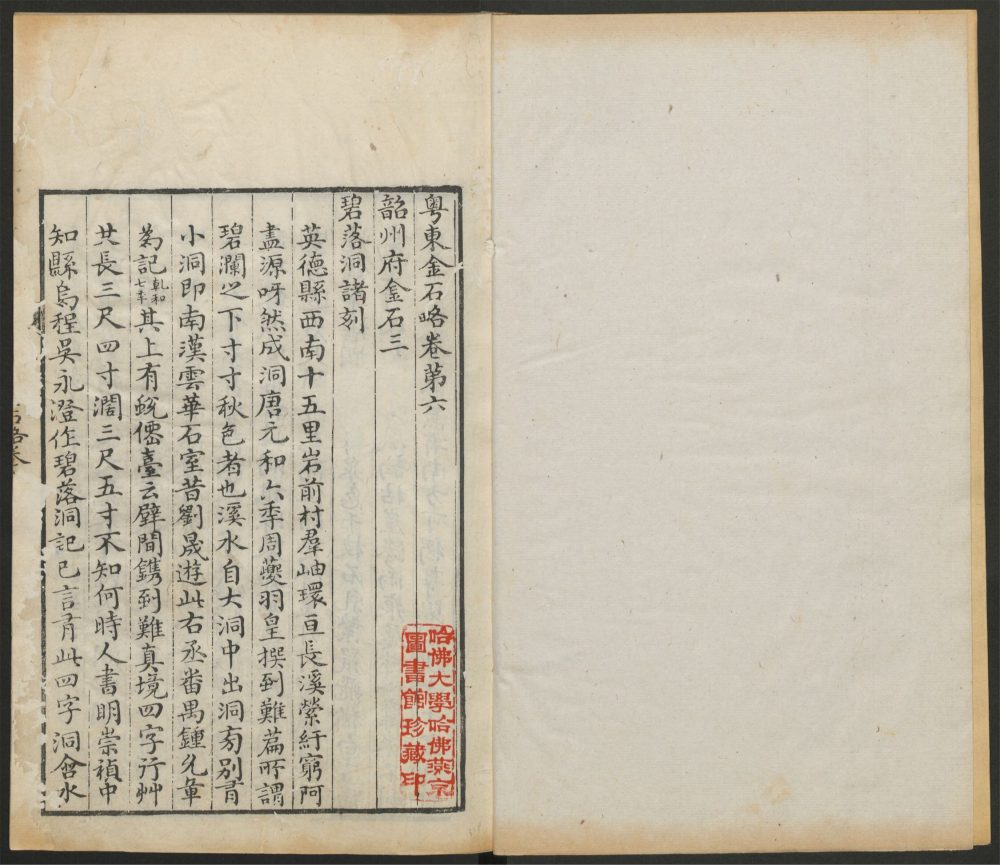 粤東金石略卷第六
韶州府金石三
碧落洞諸刻
英德縣西南十五里岩前村羣岫環亘長溪縈紆窮阿
盡源呀然成洞唐元和六季周夔羽皇撰到難篇所謂
碧瀾之下寸寸秋色者也溪水自大洞中出洞旁别有
小洞即南漢雲華石室昔劉晟遊此右丞番禺鍾允章
為記乾和七年其上有蛻僊臺云壁間鐫到難真境四字行艸
共長三尺四寸濶三尺五寸不知何時人書明崇禎中
知縣烏程吳永澄作碧落洞記已言有此四字洞含水
哈佛大學哈佛燕京
圖書館珍藏印